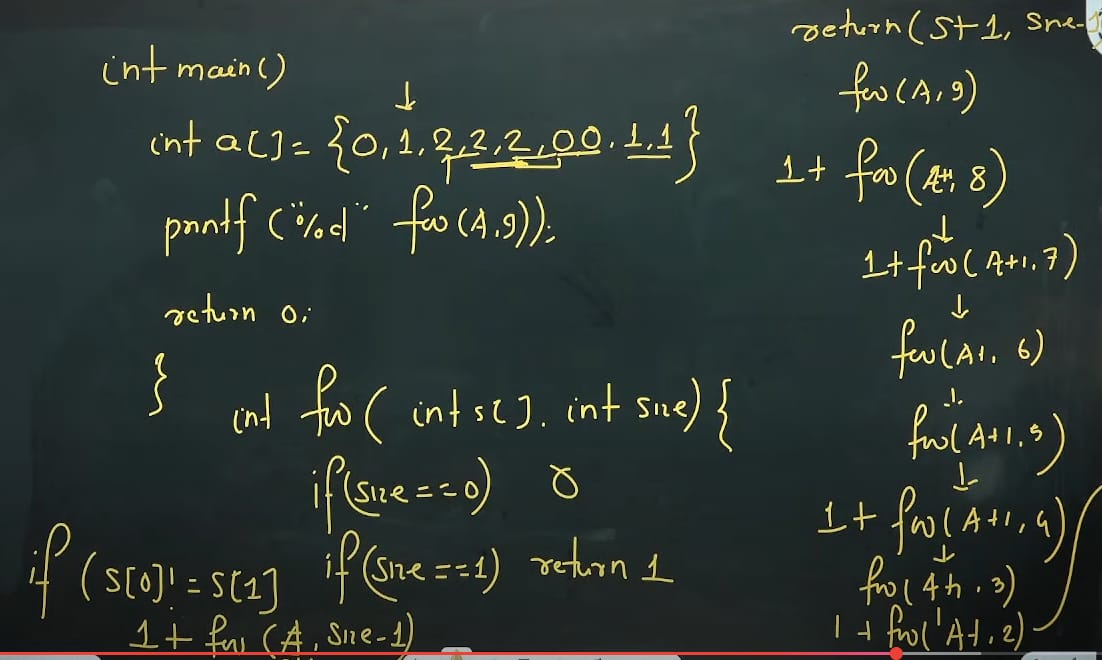 int main()
int a[]= {0,1,2,2,2,00.1,1}
printf ("%d" foo(A,9));
return 0;
}
int foo( int s[], int size) {
if(size==0) 0
if(size==1) return 1
if (s[0]!=s[1]
1+ foo (A, size-1)
return(S+1, Size-1
foo(A,9)
1+ foo(A+1, 8)
1+foo(A+1,7)
foo(A+1, 6)
foo(A+1,5)
1+ foo(A+1,4)
foo(A+1,3)
1+foo(A+1,2)